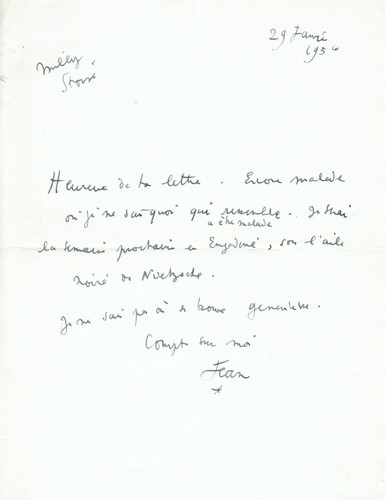 29 Janvi
195
Milly
Heureux de ta lettre. Encore malade
ou je ne sais quoi qui ressemble. Je serai
a être malade
la semaine prochaine en Engadine, sous l'aile
noire de Nietzsche.
Je ne sais pas où se trouve Geneviève.
Compte sur moi
Jean
*